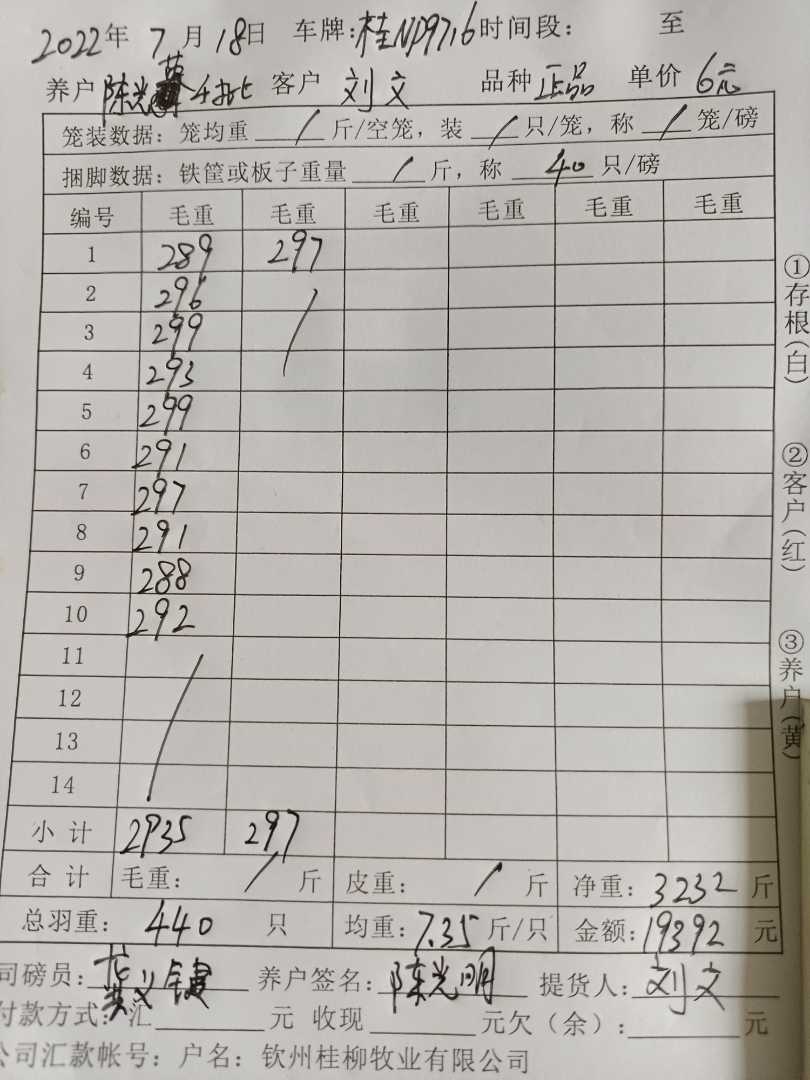 2022年 7月18日 车牌:桂NP9716 时间段: 至
养户 陈光 4批 客户 刘文 品种 正品 单价 6元
笼装数据: 笼均重 / 斤/空笼, 装 / 只/笼, 称 / 笼/磅
捆脚数据: 铁筐或板子重量 / 斤, 称 40 只/磅
编号 毛重 毛重 毛重 毛重 毛重 毛重
1 289 297
2 296 /
3 299
4 293
5 299
6 291
7 297
8 291
9 288
10 292
11 /
12
13
14
小计 2935 297
合计 毛重: / 斤 皮重: / 斤 净重: 3232 斤
总羽重: 440 只 均重: 7.35 斤/只 金额: 19392 元
司磅员: 黄义键 养户签名: 陈光明 提货人: 刘文
付款方式: 汇 元 收现 元欠(余): 元
公司汇款帐号: 户名: 钦州桂柳牧业有限公司
①存根(白)
②客户(红)
③养户(黄)